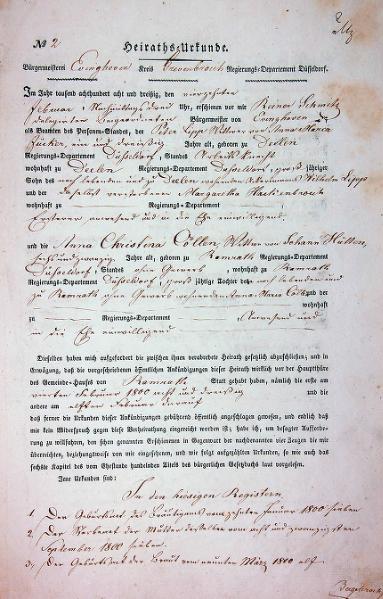 № 2
Heiraths-Urkunde.
Bürgermeisterei Evinghoven Kreis Grevenbroich Regierungs-Departement Düsseldorf.
Im Jahr tausend achthundert acht und dreißig, den vierzehnten
Februar Nachmittags drei Uhr, erschienen vor mir Reiner Schmitz
Bürgermeister von Evinghoven
als Beamten des Personen-Standes, der Peter Wittwer von Anna Maria
ein und dreißig Jahre alt, geboren zu Deelen
Regierungs-Departement Düsseldorf, Standes
wohnhaft zu Deelen Regierungs-Departement Düsseldorf, groß jähriger
Sohn des noch lebenden und zu Deelen wohnenden Ackermanns Wilhelm
und der daselbst verstorbenen Margaretha
wohnhaft zu Regierungs-Departement
Ersterer anwesend und in die Ehe einwilligend.
und die Anna Christina Cöllen, Wittwe von Johann Hütten,
sechs und zwanzig Jahre alt, geboren zu Ramrath Regierungs-Departement
Düsseldorf, Standes ohne Gewerb, wohnhaft zu Ramrath
Regierungs-Departement Düsseldorf, groß jährige Tochter des noch lebenden und
zu Ramrath ohne Gewerb wohnenden Anna Maria Cöllen und der
wohnhaft
zu Regierungs-Departement Anwesend und
in die Ehe einwilligend
Dieselben haben mich aufgefordert die zwischen ihnen verabredete Heirath gesetzlich abzuschließen; und in
Erwägung, daß die vorgeschriebenen öffentlichen Ankündigungen dieser Heirath wirklich vor der Hauptthüre
des Gemeinde-Hauses von Ramrath Statt gehabt haben, nämlich die erste am
vierten Februar 1800 acht und dreißig und die
andere am elften Februar darauf
daß ferner die Urkunden dieser Ankündigungen gebührend öffentlich angeschlagen gewesen, und endlich daß
mir kein Widerspruch gegen diese Verheirathung eingereicht worden ist; habe ich, um besagter Aufforde-
rung zu willfahren, den schon genannten Erschienenen in Gegenwart der nachbenannten vier Zeugen die mir
überreichten, beziehungsweise von mir eingesehenen, und wie folgt aufgezählten Urkunden, so wie auch das
sechste Kapitel des vom Ehestande handelnden Titels des bürgerlichen Gesetzbuchs laut vorgelesen.
Jene Urkunden sind:
In den hiesigen Registern
1. Der Geburtsact des Bräutigams vom zehnten Januar 1800 sieben
2. Der Sterbeact der Mutter desselben vom acht und zwanzigsten
September 1800 sieben.
3. Der Geburtsact der Braut vom neunten März 1800 elf